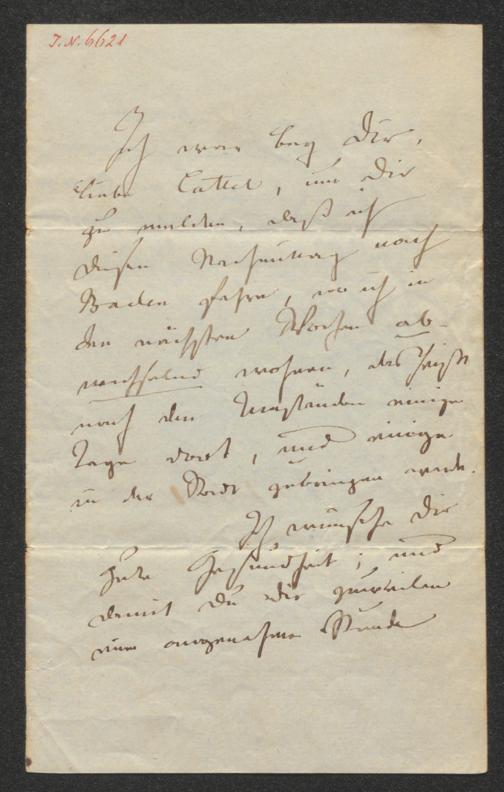 J.N. 6621
Ich war bey Dir,
liebe Cattel, um Dir
zu melden, daß ich
diesen Nachmittag nach
Baden fahre, wo ich in
den nächsten Wochen ab-
wechselnd wohnen, das heißt
nach den Umständen einige
Tage dort, und einige
in der Stadt zubringen werde.
Ich wünsche Dir
gute Gesundheit; und
damit Du Dir zuweilen
eine angenehme Stunde